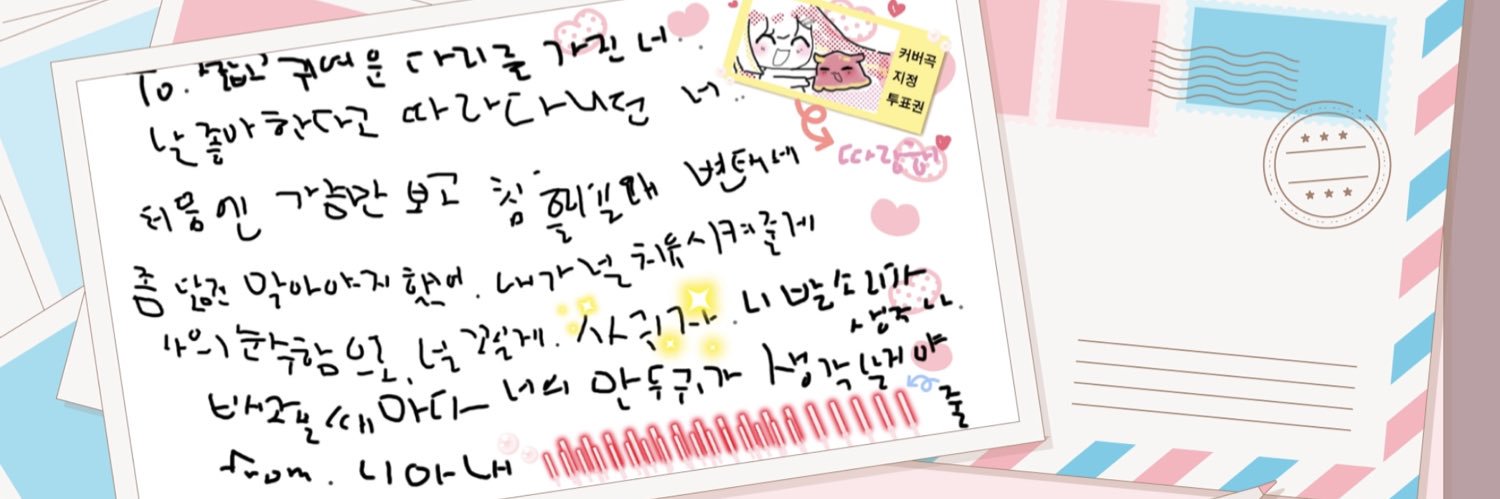 To. 짧고 귀여운 다리를 가진 너..
날 좋아한다고 따라다니던 너..
처음엔 가슴만 보고 침 흘릴때 변태세
좀 단단 막아야지 했어. 내가 널 치유시켜줄게
나의 순수함으로, 널 꼬실게. 사귀자. 니 발소리가
생각나
배주물때마다 너의 만두귀가 생각날거야
줄
from. 니아내
커버곡
지정
투표권